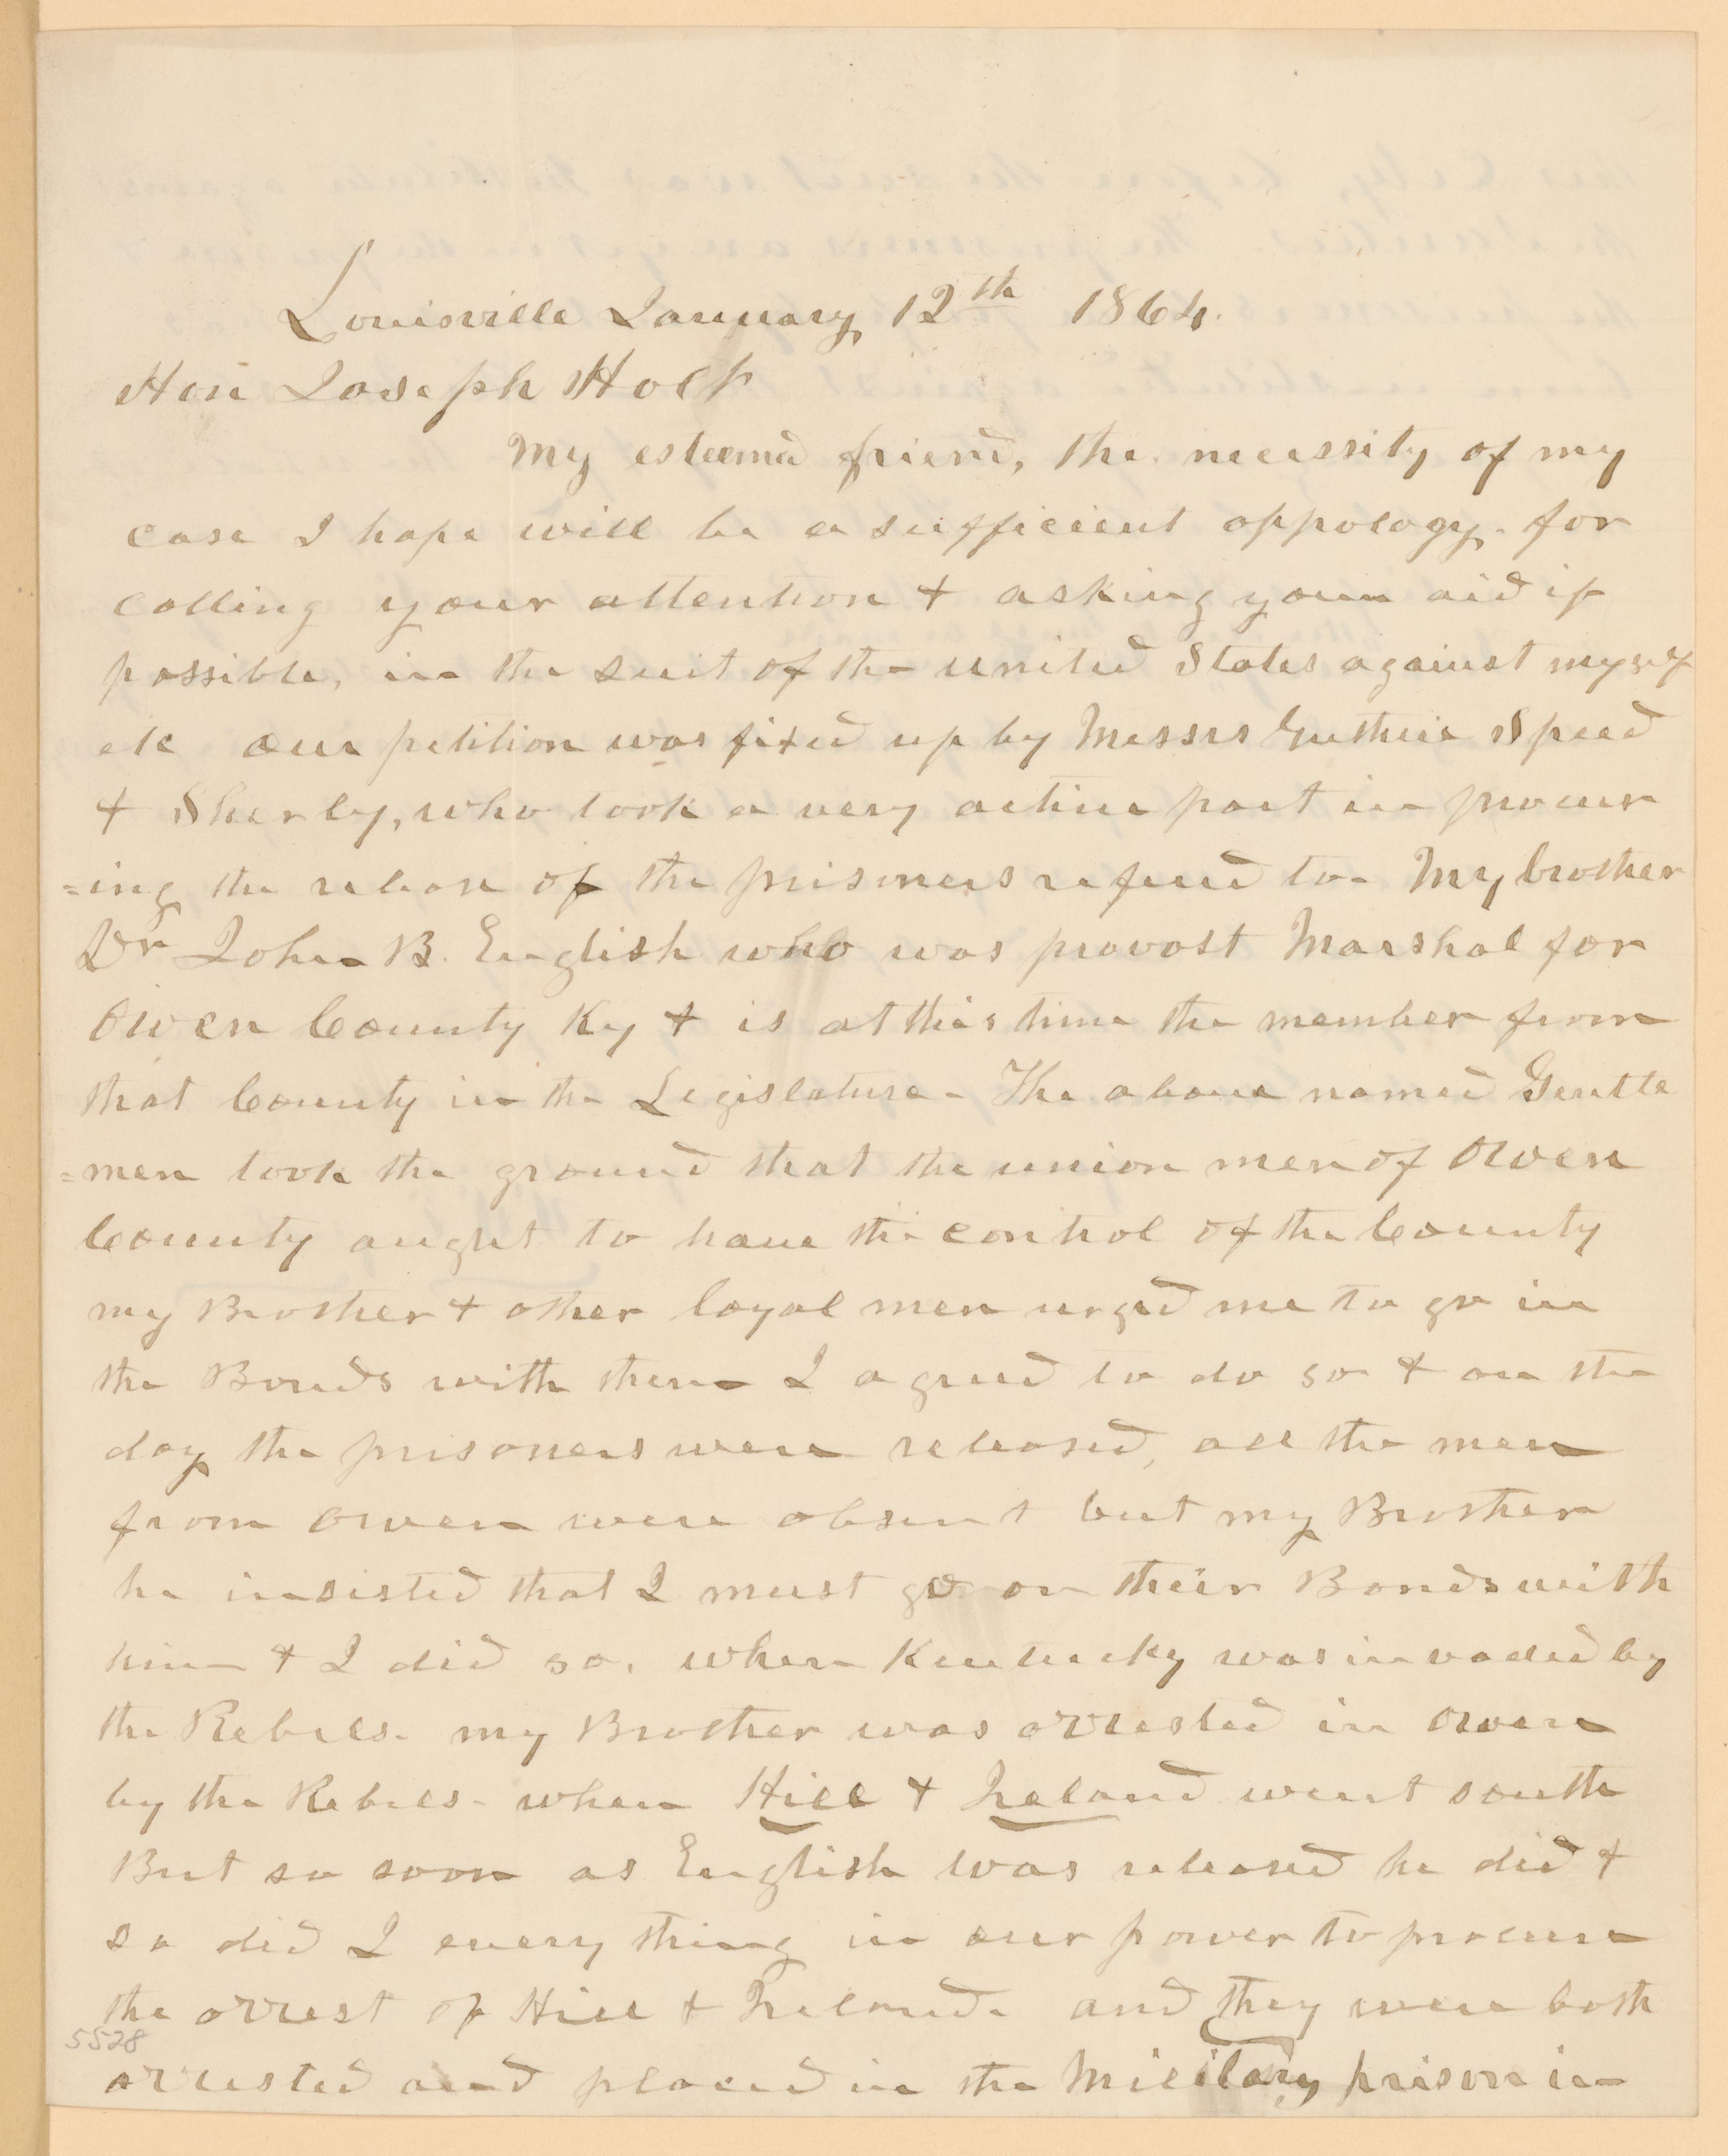 Louisville January 12th 1864.
Hon Joseph Holt
My esteemd friend, the necessity of my
case I hope will be a sufficient oppology. for
calling your attention + asking your aid if
possible, in the suit of the united States against myself
etc our petition was fixed up by Messrs Guthrie Speed
+ Sherley, who took a very active part in procur
=ing the release of the prisoners refered to- My brother
Dr John B. English who was provost Marshal for
Owen County Ky + is at this time the member from
that County in the Legislature- The above named Gentle
=men took the ground that the union men of Owen
County aught to have the control of the County
my Brother + other loyal men urged me to go in
the Bonds with them I agreed to do so + on the
day the prisoners were released, all the men
from Owen were absent but my Brother
he insisted that I must go on their Bonds with
him + I did so. when Kentucky was invaded by
the Rebels- my Brother was arrested in Owen
by the Rebels- when Hill + Ireland went south
But so soon as English was released he did +
so did I every thing in our power to procure
the arrest of Hill + Ireland- and they were both
5528
arrested and placed in the Military prison in